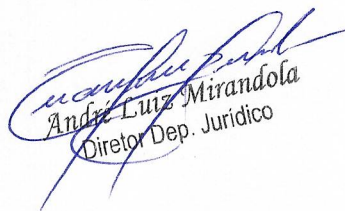 André Luiz Mirandola
Diretor Dep. Jurídico